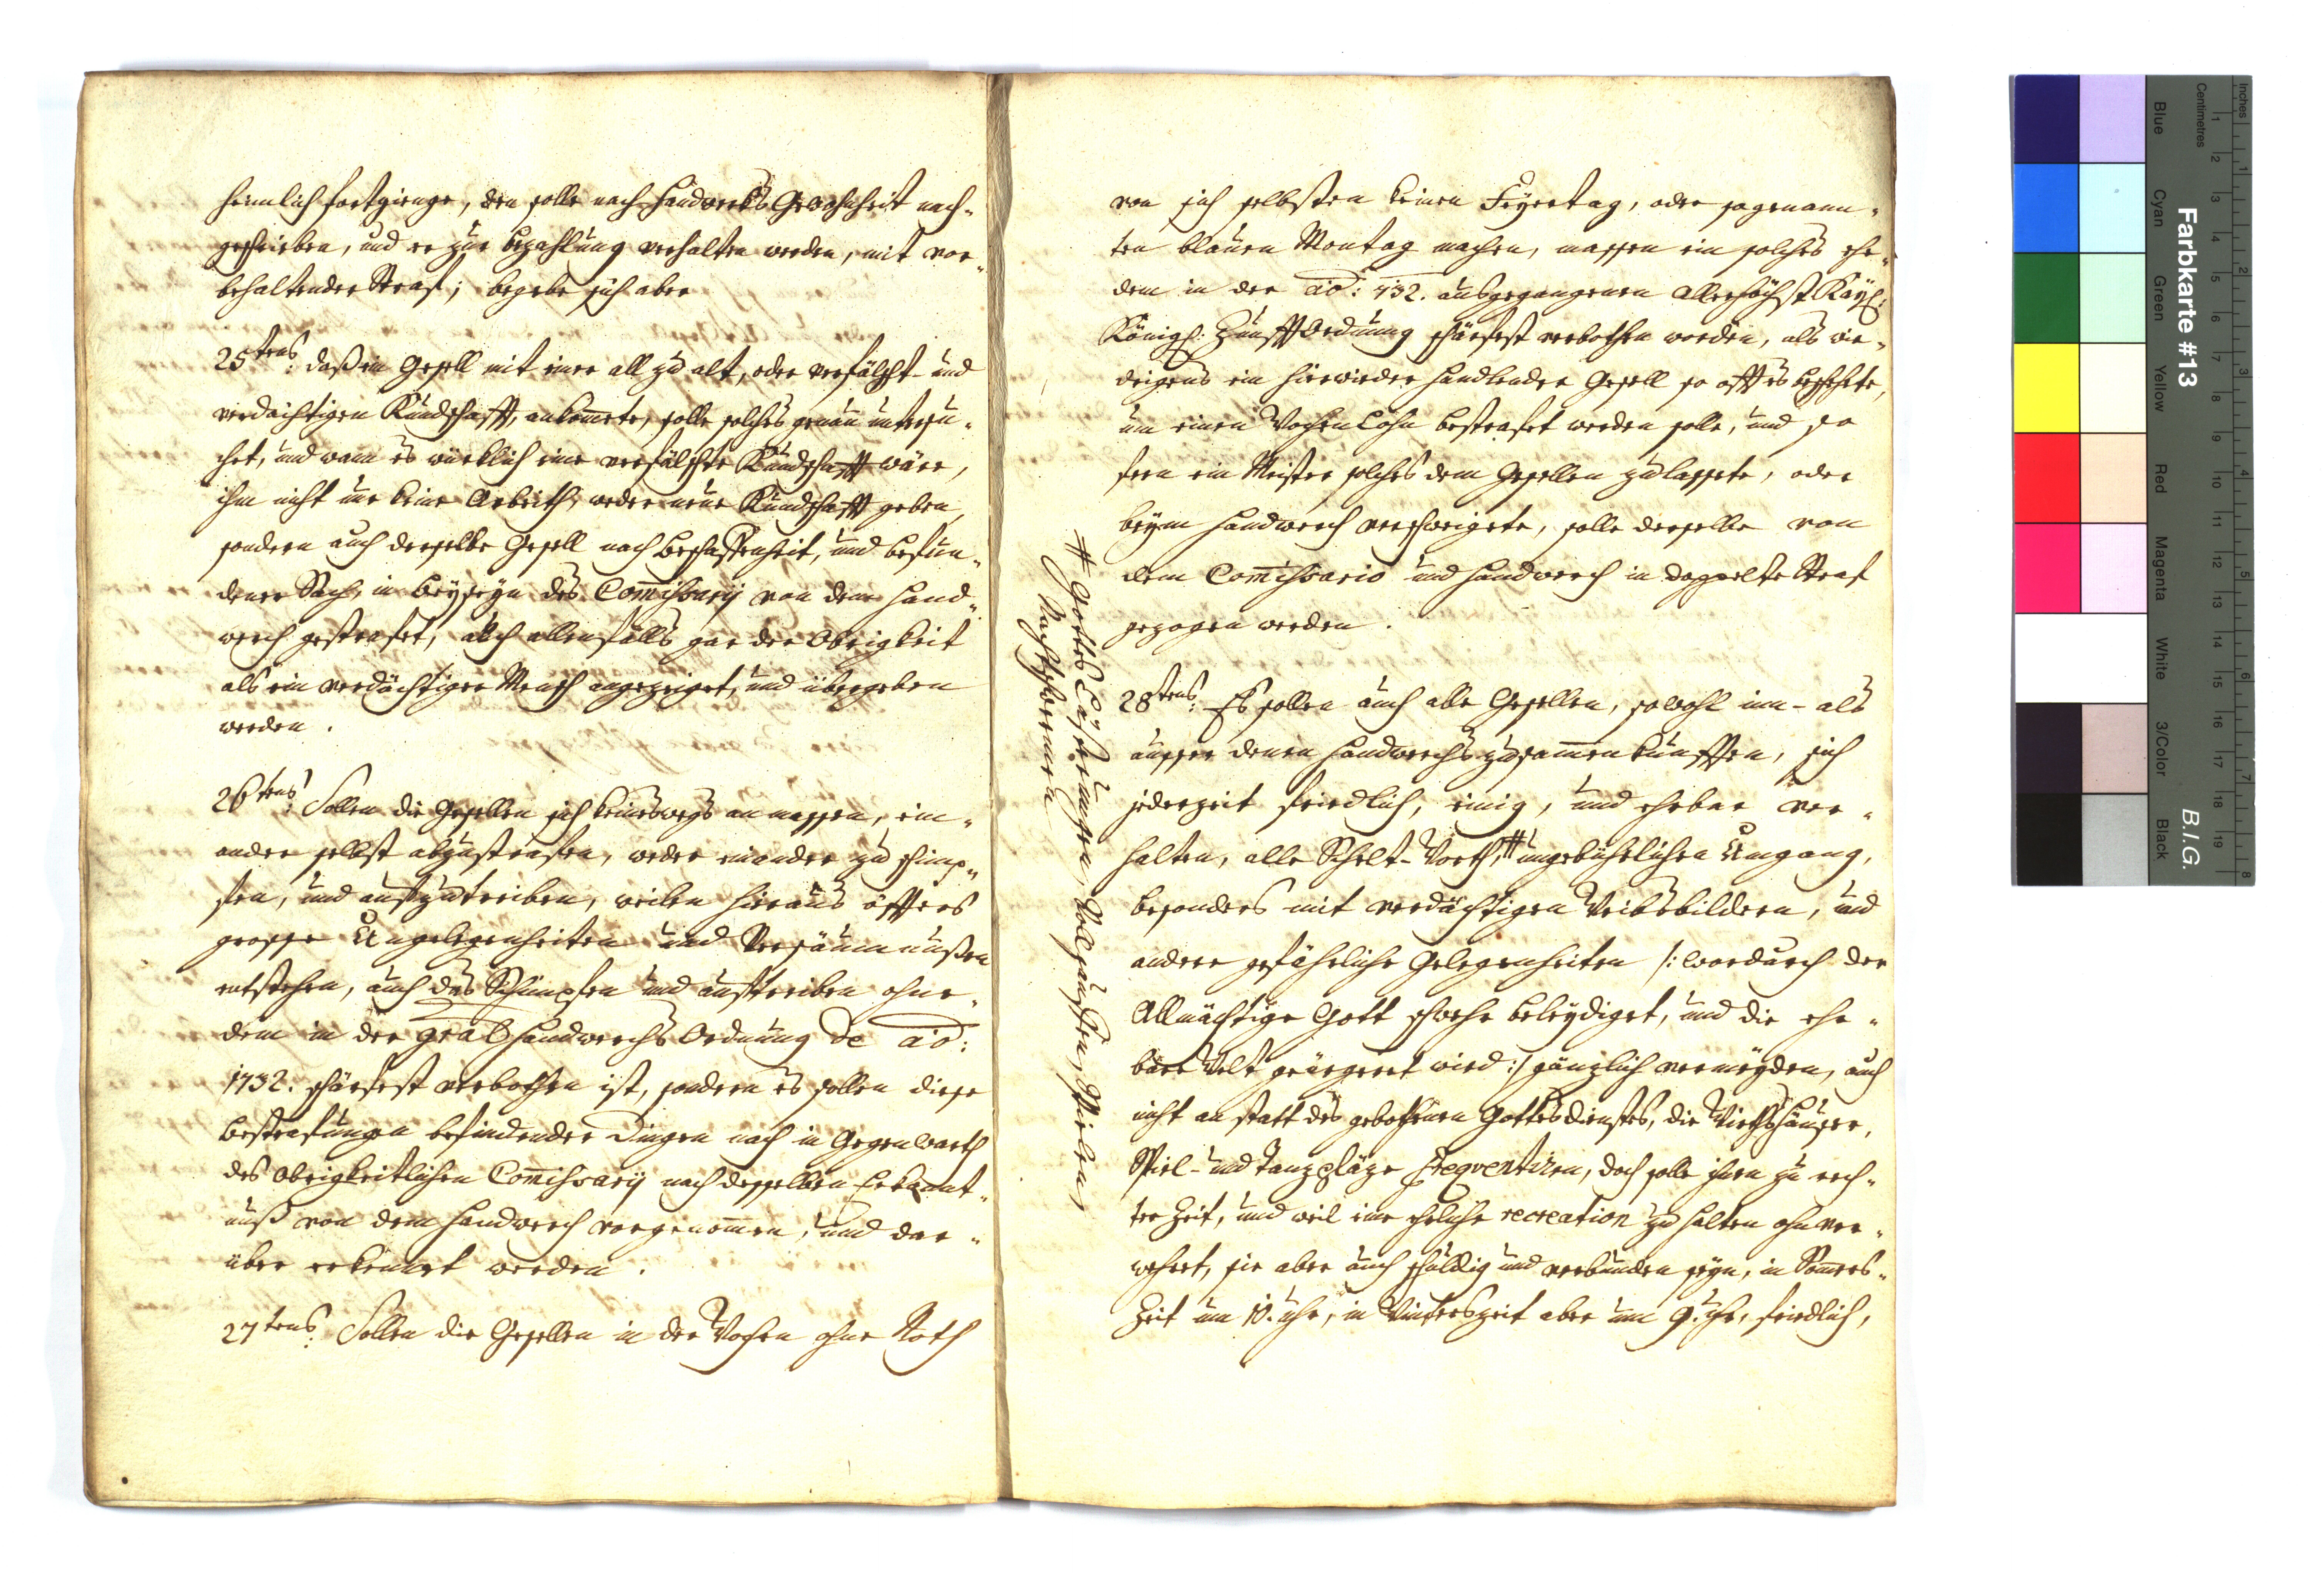 heimlich fortgienge, den solle nach Handwerks Gewohnheit nach-
geschrieben, und er zur bezahlung verhalten werden, mit vor-
behaltender Straf; begebe sich aber
25tens: daß ein Gesell mit einer all zu alt, oder verfälscht- und
verdächtigen Kundschafft, ankommete, solle solches genau untersu-
chet, und wann es würklich eine verfälschte Kundschafft wäre,
ihm nicht nur keine Arbeith, weder neue Kundschafft geben,
sondern auch derselbe Gesell nach Beschaffenheit, und befun-
dener Sach, in Beyseyn des Commissarij von dem Hand-
werch gestrafet, auch allenfalls gar der Obrigkeit
als ein verdächtiger Mensch angezeiget, und übergeben
werden.
26tens: Sollen die Gesellen sich keineswegs anmassen, ein-
ander selbst abzustrafen, weder einander zu schimp-
fen, und aufzutreiben, weilen hieraus öffters
grosse Ungelegenheiten und Versäumnussen
entstehen, auch das Schimpfen und auftreiben ohne-
dem in der gral Handwerchs Ordnung de ao:
1732. schärfest verbothen ist, sondern es sollen diese
bestrafungen befindender Dingen nach in Gegenwarth
des Obrigkeitlichen Commissarij nach desselben Erkannt-
nuß von dem Handwerch vorgenommen, und dar-
über erkennet werden.
27tens: Sollen die Gesellen in der Wochen ohne Noth
von sich selbsten keinen Feyertag, oder sogenann-
ten blauen Montag machen, massen ein solches ehe-
dem in der ao: 732. ausgegangenen Allerhöchst Kayl:
Königl: Zunfft Ordnung schärfest verbothen worden, als wie-
drigens ein hierwieder handlender Gesell so offt es beschehete,
um einen Wochen Lohn bestrafet werden solle, und so
fern ein Meister solches dem Gesellen zulassete, oder
beym Handwerch verschweigete, solle derselbe von
dem Commissario und Handwerch in doppelte Straf
gezogen werden.
28tens: Es sollen auch alle Gesellen, sowohl inn- als
ausser denen Handwerchs zusammenkunfften, sich
jederzeit friedlich, einig, und ehrbar ver-
halten, alle Schelt-Worth, # ungebührlichen Umgang,
besonders mit verdächtigen Weibsbildern, und
andere gefährliche Gelegenheiten /: wordurch der
Allmächtige Gott schwehr beleydiget, und die ehr-
bare Welt geärgeret wird :/ gänzlich vermeyden, auch
nicht an statt des gebothenen Gottesdienstes, die Wirthshäuser,
Spiel- und Tanzpläze freqventiren, doch solle ihnen zu rech-
ter Zeit, und weil eine ehrliche recreation zu halten ohnver-
wehret, sie aber auch schuldig und verbunden seyn, in Sommers-
Zeit um 10. Uhr, in Winterszeit aber um 9. Uhr, friedlich,
# Gottes Lästerungen, Vollsauffen, Spielen,
Nachtschwermen